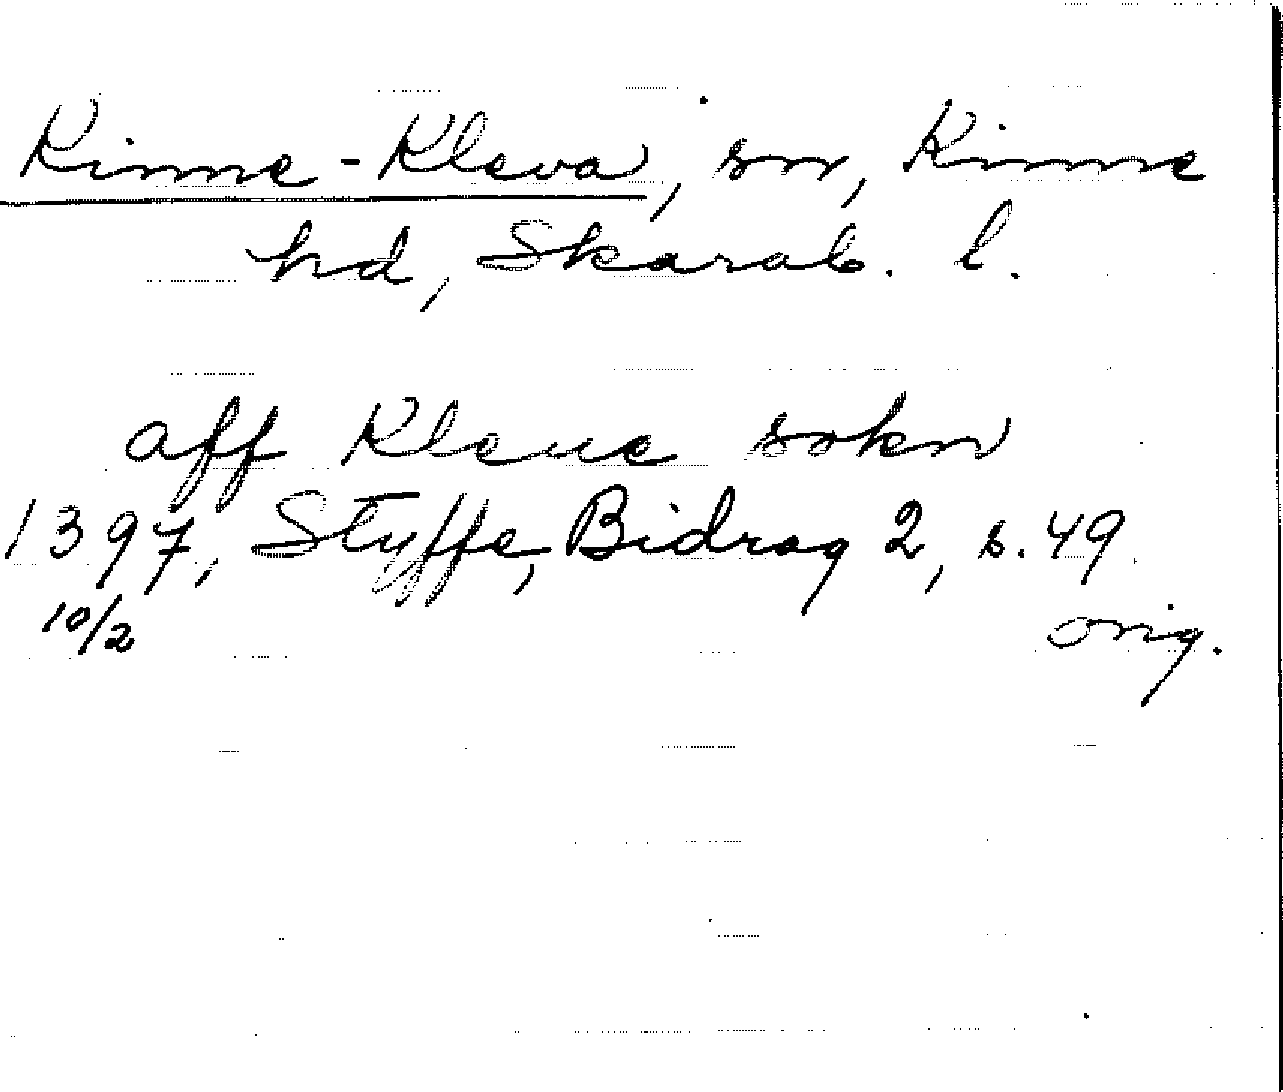 Kinne-Kleva, sn, Kinne
hd, Skarab. l.
aff Kleue sokn
1397, Styffe, Bidrag 2, s. 49
10/2 orig.